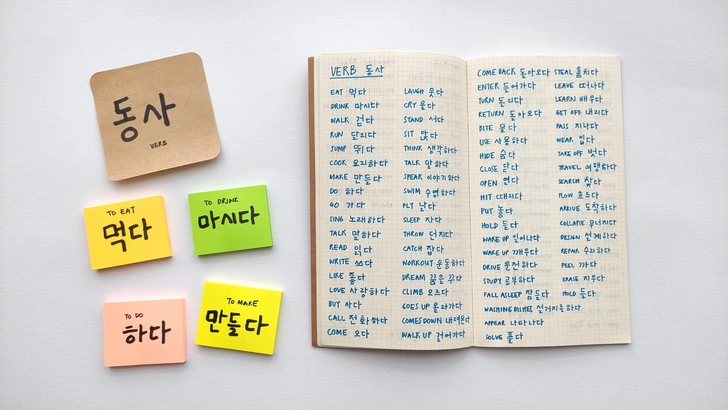 동사
VERB
TO EAT
먹다
TO DRINK
마시다
TO DO
하다
TO MAKE
만들다
VERB 동사
EAT 먹다
DRINK 마시다
WALK 걷다
RUN 달리다
JUMP 뛰다
COOK 요리하다
MAKE 만들다
DO 하다
GO 가다
SING 노래하다
TALK 말하다
READ 읽다
WRITE 쓰다
LIKE 좋다
LOVE 사랑하다
BUY 사다
CALL 전화하다
COME 오다
LAUGH 웃다
CRY 울다
STAND 서다
SIT 앉다
THINK 생각하다
TALK 말하다
SPEAK 이야기하다
SWIM 수영하다
FLY 날다
SLEEP 자다
THROW 던지다
CATCH 잡다
WORKOUT 운동하다
DREAM 꿈을 꾸다
CLIMB 오르다
GOES UP 올라가다
COMES DOWN 내려오다
WALK UP 걸어가다
COME BACK 돌아오다
ENTER 들어가다
TURN 돌리다
RETURN 돌아오다
BITE 물다
USE 사용하다
HIDE 숨다
CLOSE 닫다
OPEN 열다
HIT 때리다
PUT 놓다
HOLD 들다
WAKE UP 일어나다
WAKE UP 깨우다
DRIVE 운전하다
STUDY 공부하다
FALL ASLEEP 잠들다
WASHING DISHES 설거지를하다
APPEAR 나타나다
SOLVE 풀다
STEAL 훔치다
LEAVE 떠나다
LEARN 배우다
GET OFF 내리다
PASS 지나다
WEAR 입다
TAKE OFF 벗다
TRAVEL 여행하다
SEARCH 찾다
FLOW 흐르다
ARRIVE 도착하다
COLLAPSE 무너지다
DESIGN 설계하다
REPAIR 수리하다
PEEL 까다
ERASE 지우다
HOLD 들다